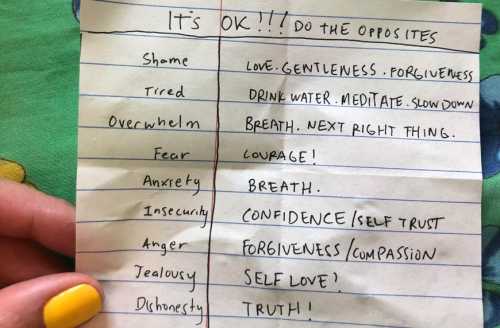 IT'S OK!!! DO THE OPPOSITES
Shame LOVE. GENTLENESS. FORGIVENESS
Tired DRINK WATER. MEDITATE. SLOW DOWN
Overwhelm BREATH. NEXT RIGHT THING.
Fear COURAGE!
Anxiety BREATH.
Insecurity CONFIDENCE/SELF TRUST
Anger FORGIVENESS/COMPASSION
Jealousy SELF LOVE!
Dishonesty TRUTH!